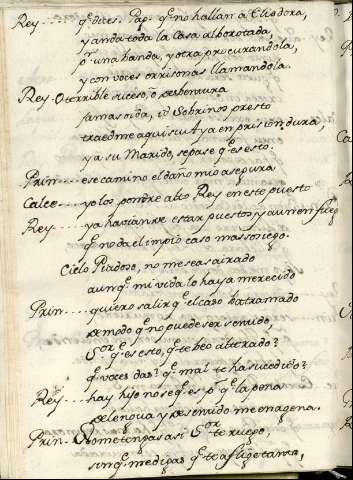 Rey.... q̃ dices. Pap. q̃ no hallan a Eliodora,
y anda toda la Casa alborotada,
pr una banda, y otra procurandola,
y con voces orrisonas llamandola.
Rey. O terrible suceso, o desbentura
jamas oida, id Sobrinos presto
traedme aqui su Aya en prision dura,
y a su Marido, sepase q̃ es esto.
Prin.... ese camino el daño mio asegura
Calce.... yo los pondre alto Rey en este puesto
Rey.... ya hauian de estar puestos, y aun en fuego
q̃ no da el impio caso mas sosiego.
Cielo Piadoso, no me seas airado
aunq̃ mi vida lo haya merecido
Prin.... quiero salir q̃ el caso ba tramado
de modo q̃ no puede ser sentido,
Sor q̃ es esto, q̃ te beo alterado?
q̃ voces das? q̃ mal te ha sucedido?
Rey.... hay hijo no se q̃ es pr q̃ la pena
de lengua y de sentido me enagena.
Prin.... No te mengas asi Sor te ruego,
sin q̃ me digas q̃ te aflige tanto,